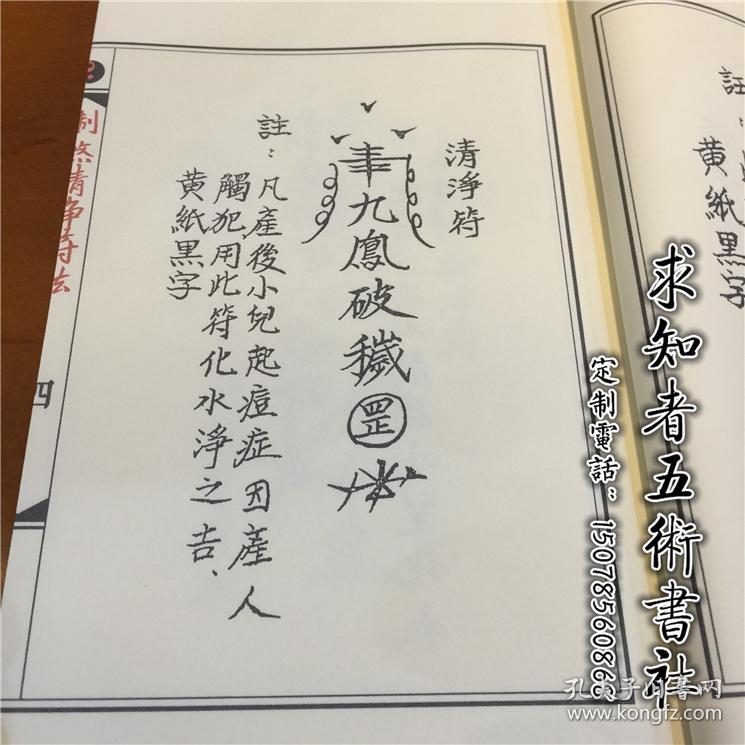 註：
黄紙黑字
清淨符
九鳳破穢罡
註：凡產後小兒起痘症因產人
觸犯用此符化水淨之吉、
黄紙黑字
制煞清净符法
四
求知者五術書社
定制電話：15078560868
孔夫子旧书网
www.kongfz.com